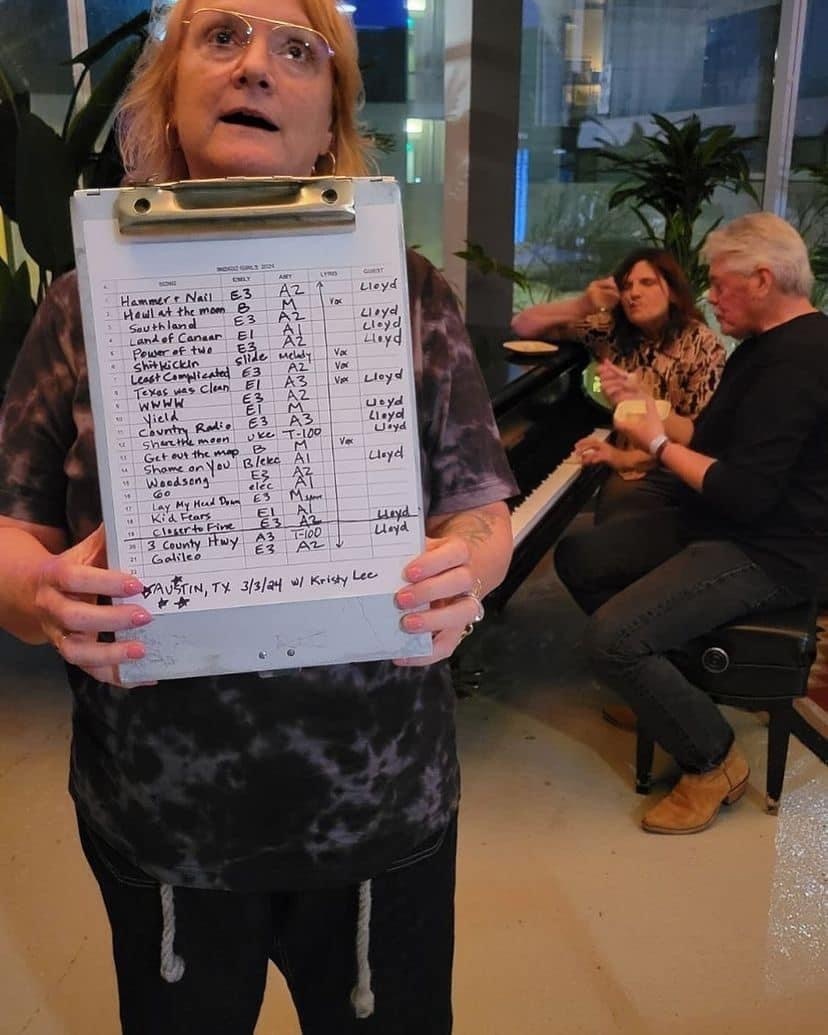 INDIGO GIRLS 2024
SONG EMILY AMY LYRIS GUEST
1 Hammer + Nail E3 A2 Lloyd
2 Howl at the moon B M Vox
3 Southland E3 A2 Lloyd
4 Land of Canaan E1 A1 Lloyd
5 Power of two E3 A2 Lloyd
6 Shitkickin slide Melody Vox
7 Least Complicated E3 A2 Vox
8 Texas was Clean E1 A3 Vox Lloyd
9 WWWW E3 A2
10 Yield E1 M Lloyd
11 Country Radio E3 A3 Lloyd
12 Share the moon uke T-100 Lloyd
13 Get out the map B M Vox
14 Shame on You B/elec A1 Lloyd
15 Woodsong E3 A2
16 Go elec A1
17 Lay My Head Down E3 M
18 Kid Fears E1 A1
19 Closer to Fine E3 A2 Lloyd
20 3 County Hwy A3 T-100 Lloyd
21 Galileo E3 A2
22
AUSTIN, TX 3/3/24 w/ Kristy Lee